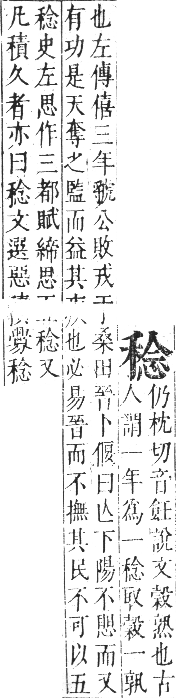 稔
仍枕切音飪說文穀熟也古
人謂一年為一稔取穀一孰
也左傳僖三年虢公敗戎于
桑田晉卜偃曰亾下陽不愳而又
有功是天奪之監而益其疾
也必易晉而不撫其民不可以五
稔史左思作三都賦締思
稔又
凡積久者亦曰稔文選惡積
釁稔